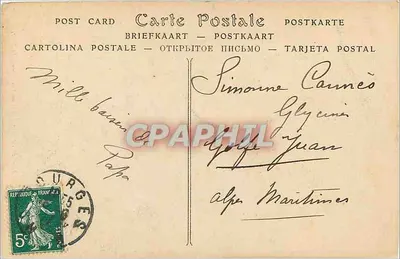 POST CARD Carte Postale POSTKARTE
BRIEFKAART — POSTKAART
CARTOLINA POSTALE — ОТКРЫТОЕ ПИСЬМО — TARJETA POSTAL
Mille baisers de
Papa
Simonne
Glycines
Golfe Juan
Alpes Maritimes
CPAPHIL
BOURGES
5c